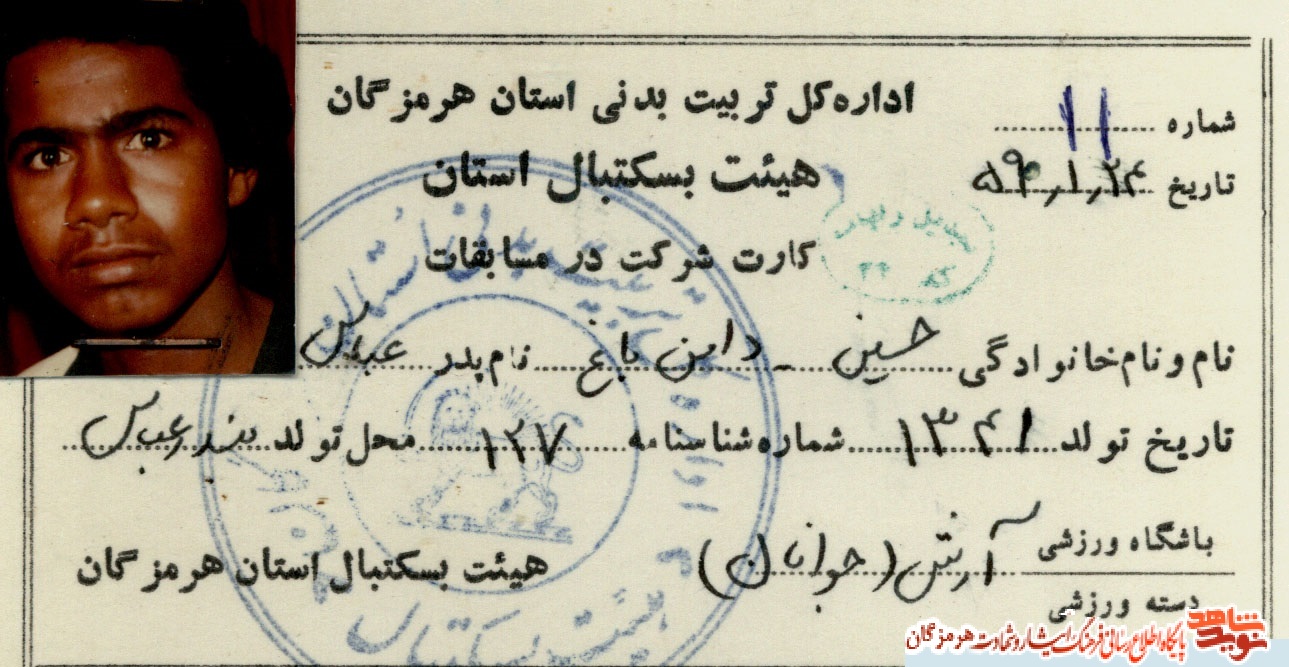 اداره کل تربیت بدنی استان هرمزگان
شماره ۱۱
هیئت بسکتبال استان
تاریخ ۵۹٫۱٫۲۴
کارت شرکت در مسابقات
نام و نام خانوادگی حسین دامن باغ نام پدر عباس
تاریخ تولد ۱۳۴۱ شماره شناسنامه ۱۲۷ محل تولد بندرعباس
باشگاه ورزشی
دسته ورزشی
آرش (جوانان)
هیئت بسکتبال استان هرمزگان
نوید شاهد
پایگاه اطلاع رسانی فرهنگ ایثار و شهادت هرمزگان